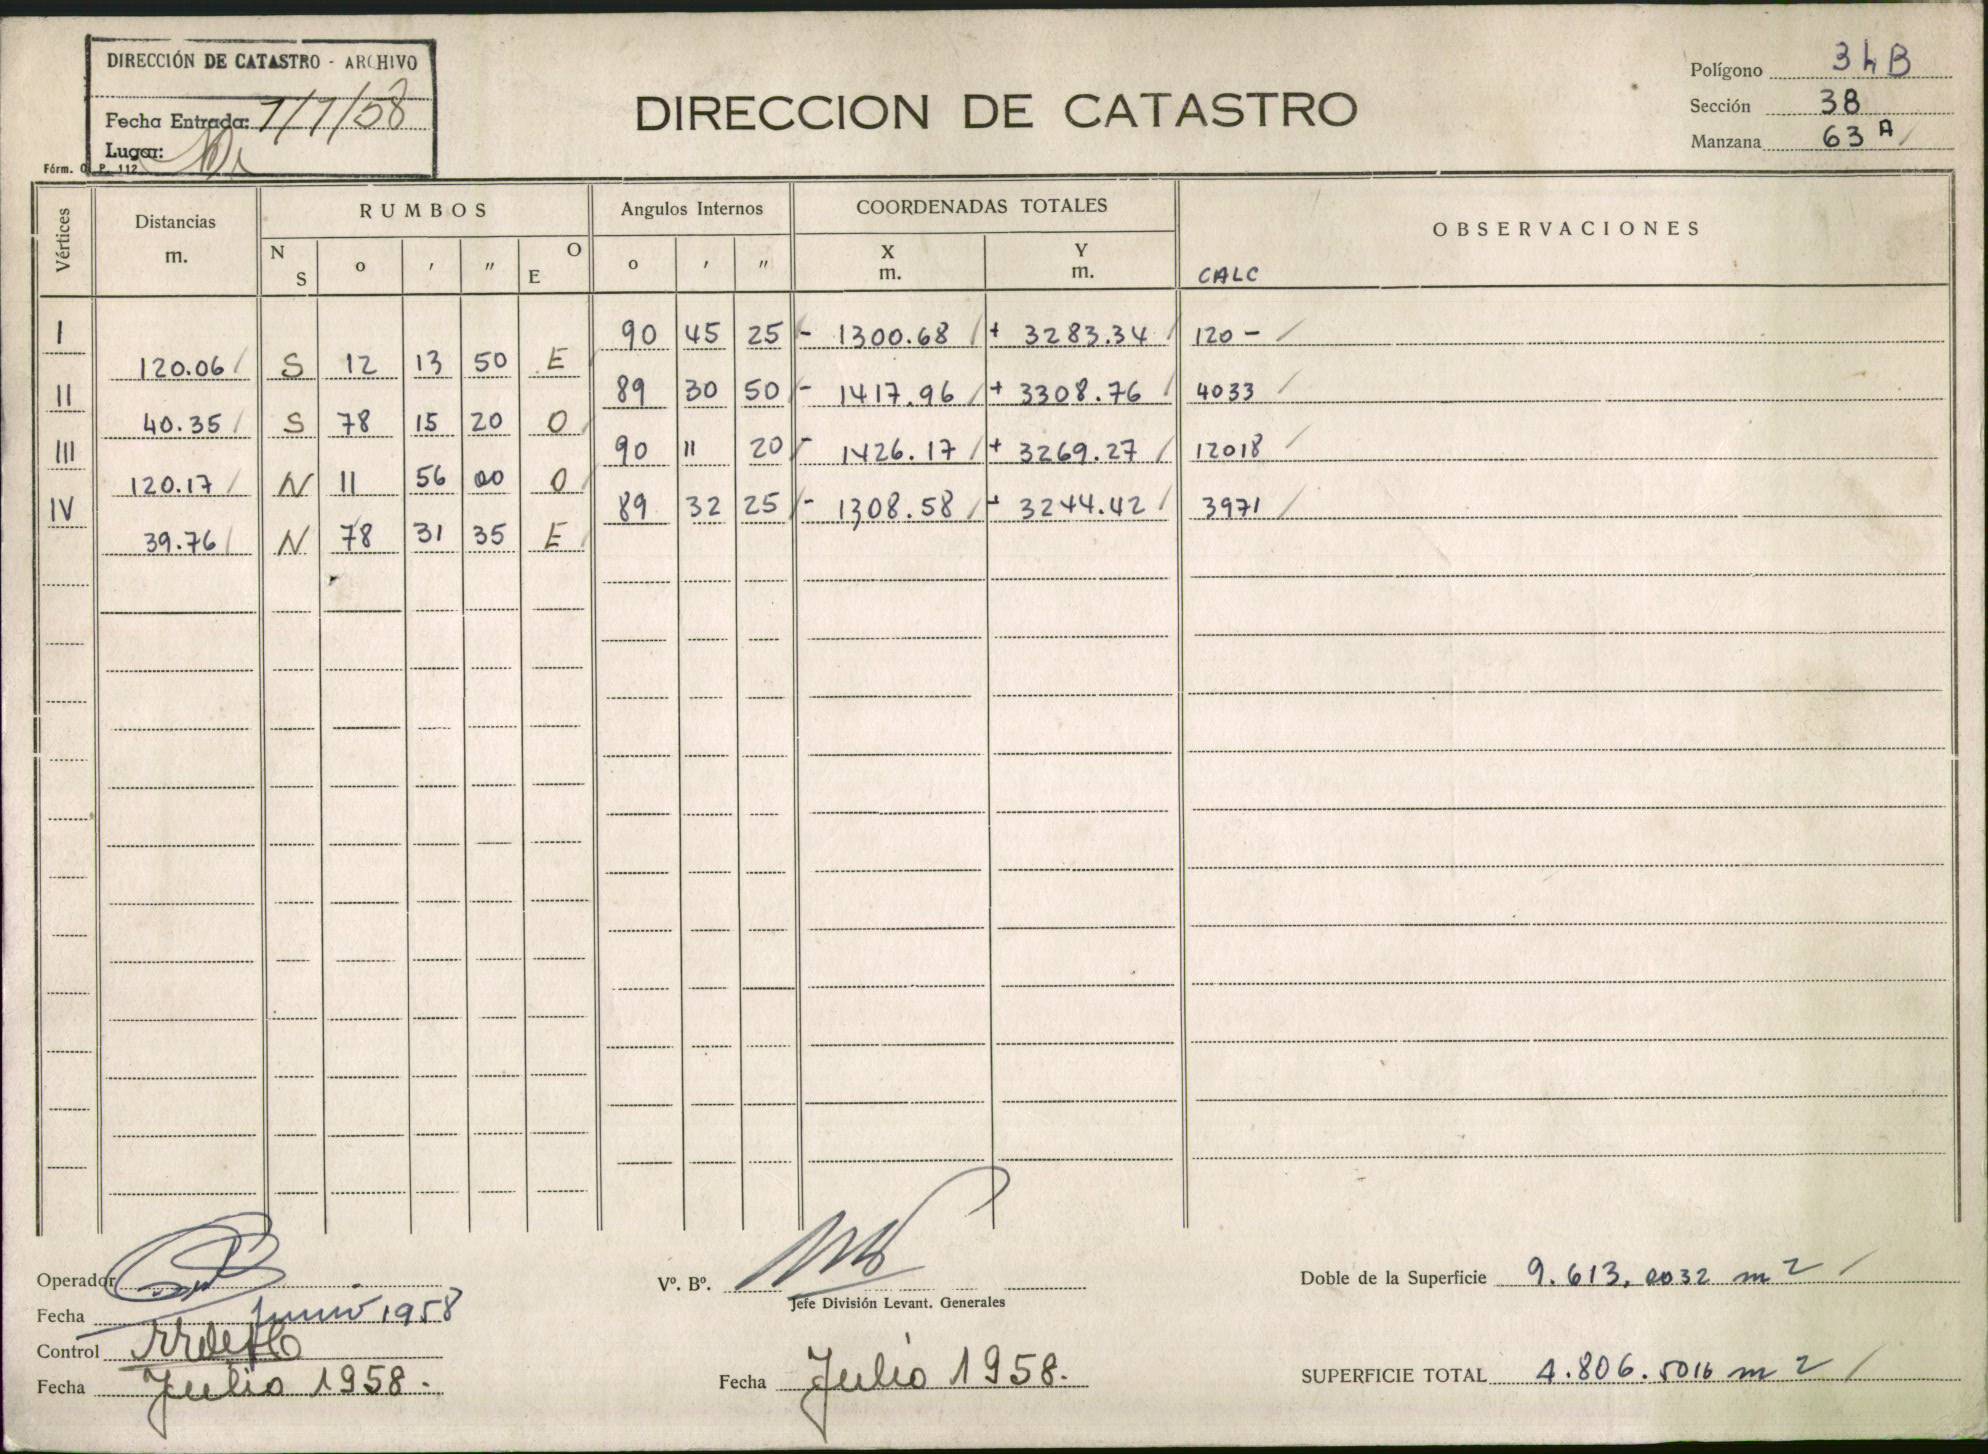 DIRECCIÓN DE CATASTRO - ARCHIVO
Fecha Entrada: 7/7/58
Lugar:
Fórm. O. P. 112
DIRECCION DE CATASTRO
Polígono 34B
Sección 38
Manzana 63 A
Vértices Distancias m. RUMBOS Angulos Internos COORDENADAS TOTALES OBSERVACIONES
N S o ' " O E o ' " X m. Y m. CALC
I 90 45 25 - 1300.68 + 3283.34 120 -
120.06 S 12 13 50 E
II 89 30 50 - 1417.96 + 3308.76 4033
40.35 S 78 15 20 O
III 90 11 20 - 1426.17 + 3269.27 12018
120.17 N 11 56 00 O
IV 89 32 25 - 1308.58 + 3244.42 3971
39.76 N 78 31 35 E
Operador
Fecha Junio 1958
Control
Fecha Julio 1958.
Vº. Bº.
Jefe División Levant. Generales
Fecha Julio 1958.
Doble de la Superficie 9.613,0032 m2
SUPERFICIE TOTAL 4.806.5016 m2